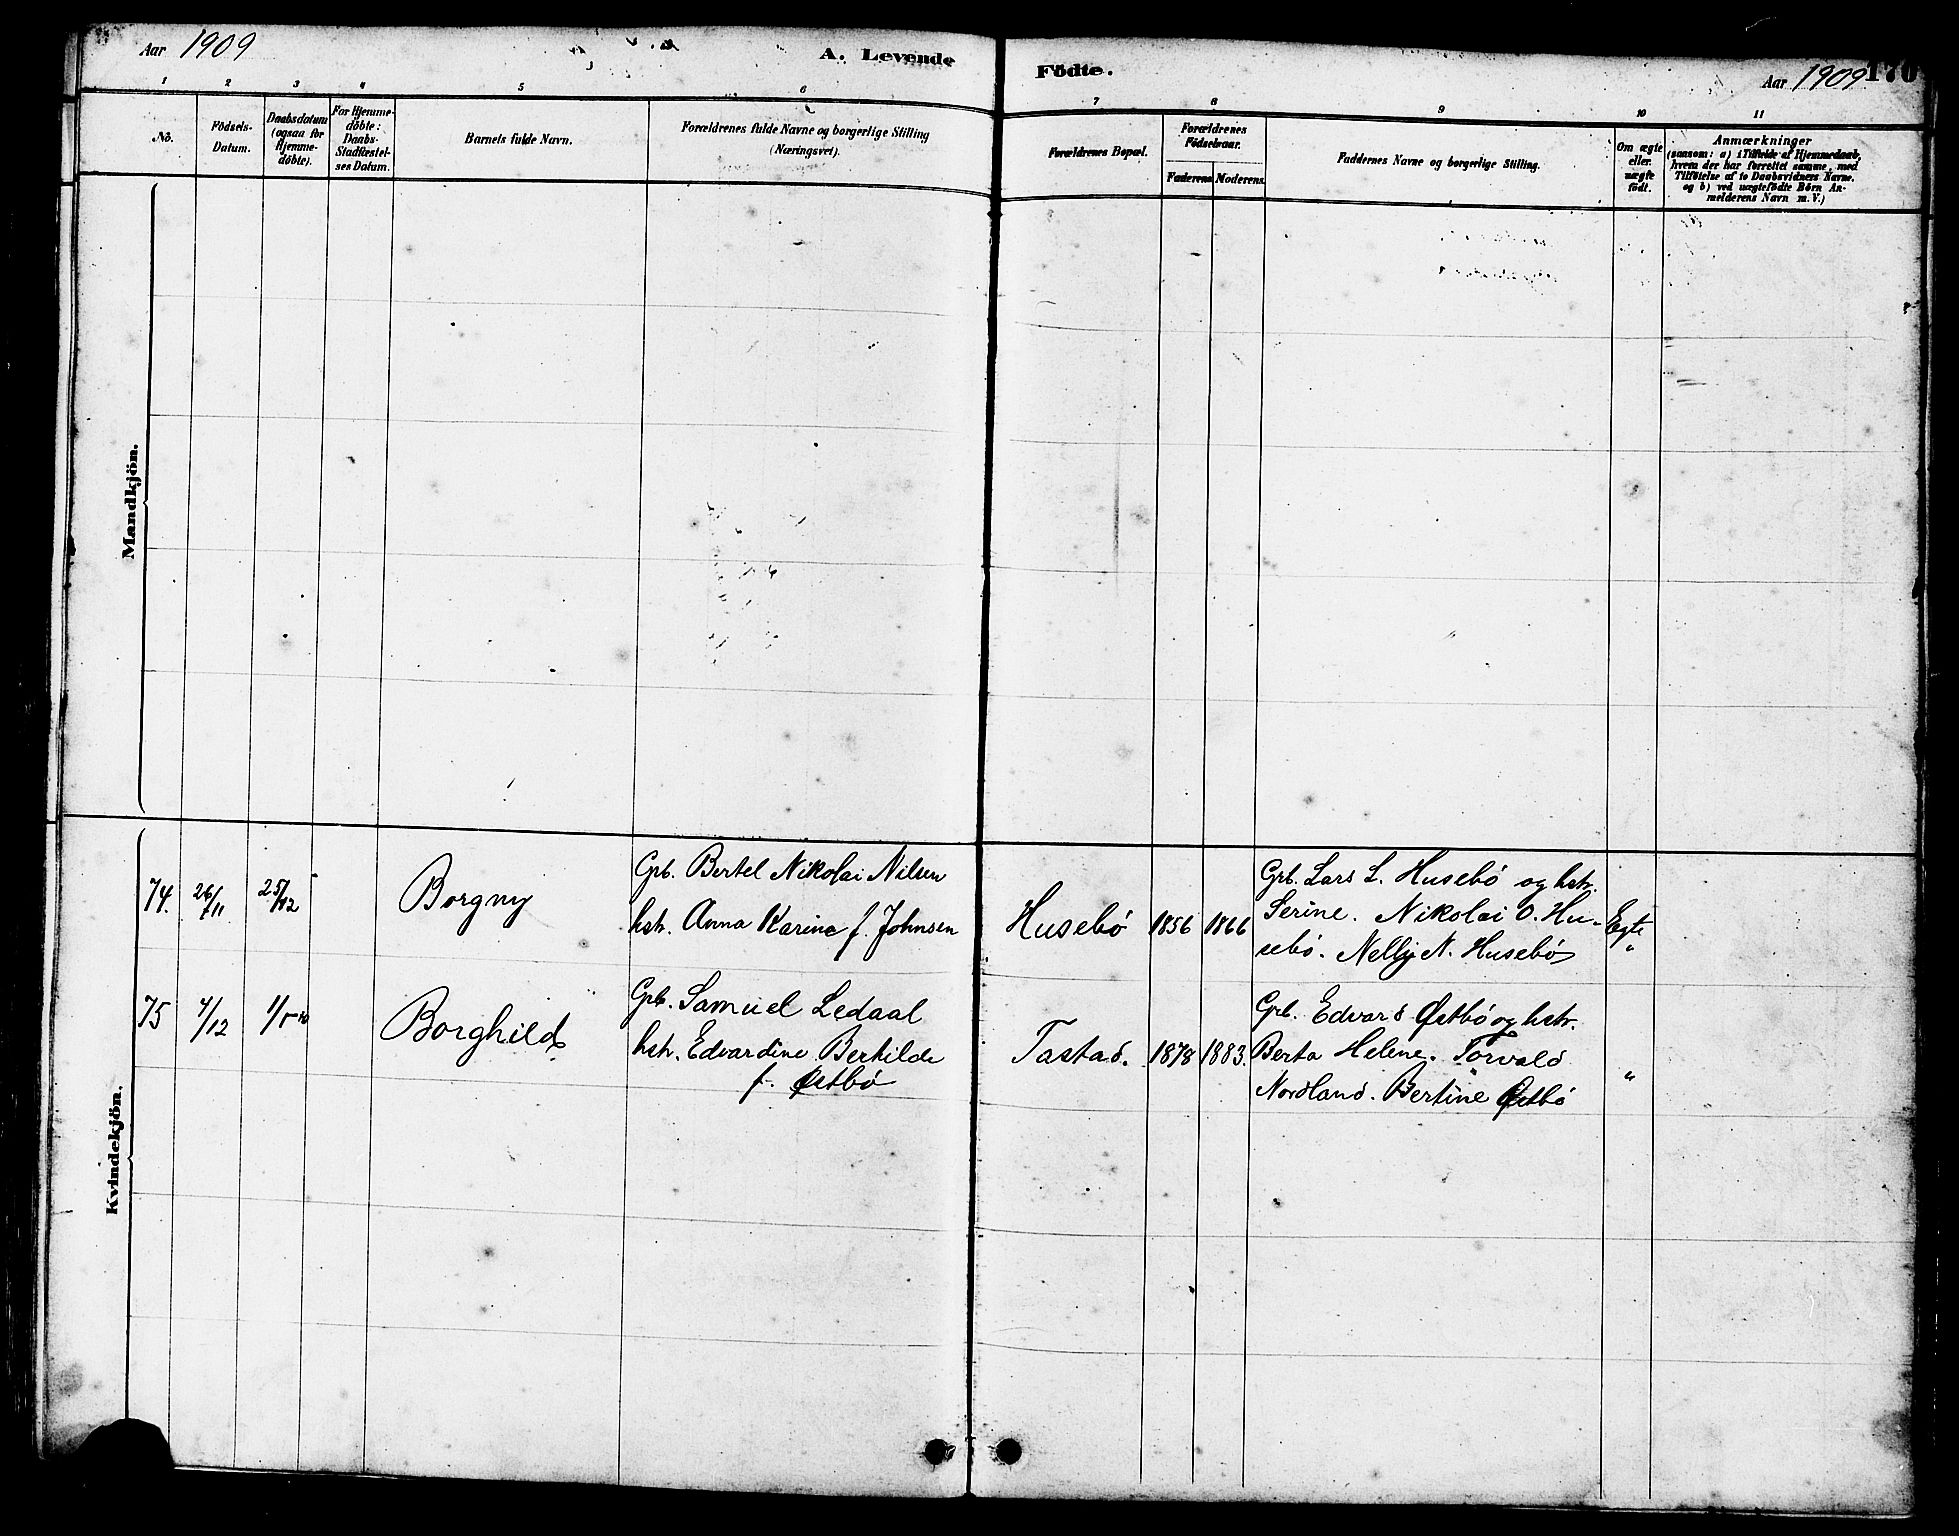 Aar 1909
A. Levende
Födte.
Aar 1909
170
1 2 3 4 5 6 7 8 9 10 11
No.
Födsels-
Datum.
Daabsdatum
(ogsaa for
Hjemme-
döbte).
For Hjemme-
döbte:
Daabs-
Stadfæstel-
ses Datum.
Barnets fulde Navn.
Forældrenes fulde Navne og borgerlige Stilling
(Næringsvei).
Forældrenes Bopæl.
Forældrenes
Födselsaar.
Faderens. Moderens.
Faddernes Navne og borgerlige Stilling.
Om ægte
eller
uægte
födt.
Anmærkninger
(saasom: a) i Tilfælde af Hjemmedaab,
hvem der har forrettet samme, med
Tilföielse af to Daabsvidners Navne.
og b) ved uægtefödte Börn An-
melderens Navn m. V.)
Mandkjön.
Kvindekjön.
74. 26/11 25/12
Borgny
Grb. Bertel Nikolai Nilsen
hstr. Anna Karine f. Johnsen
Husebö 1856 1866
Grb. Lars L. Husebö og hstr.
Serine. Nikolai O. Hu-
sebö. Nelly N. Husebö
Egte
"
75 4/12 1/1 10
Borghild
Grb. Samuel Ledaal
hstr. Edvardine Bertilde
f. Østbö
Tastad. 1878 1883.
Grb. Edvard Østbö og hstr.
Berta Helene. Torvald
Nordland. Bertine Østbö
"